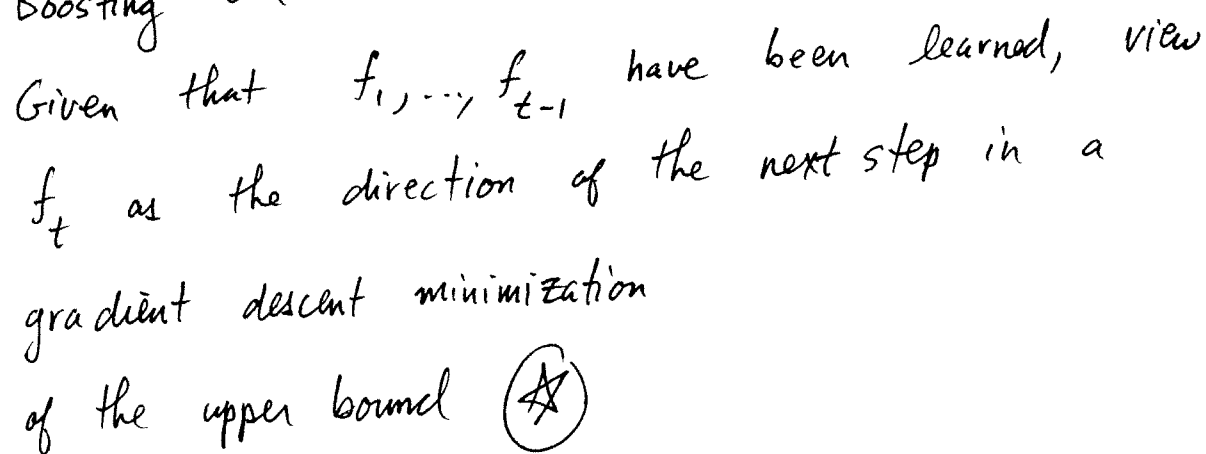 Boosting
Given that f₁, ..., f_{t-1} have been learned, view
f_t as the direction of the next step in a
gradient descent minimization
of the upper bound ☆